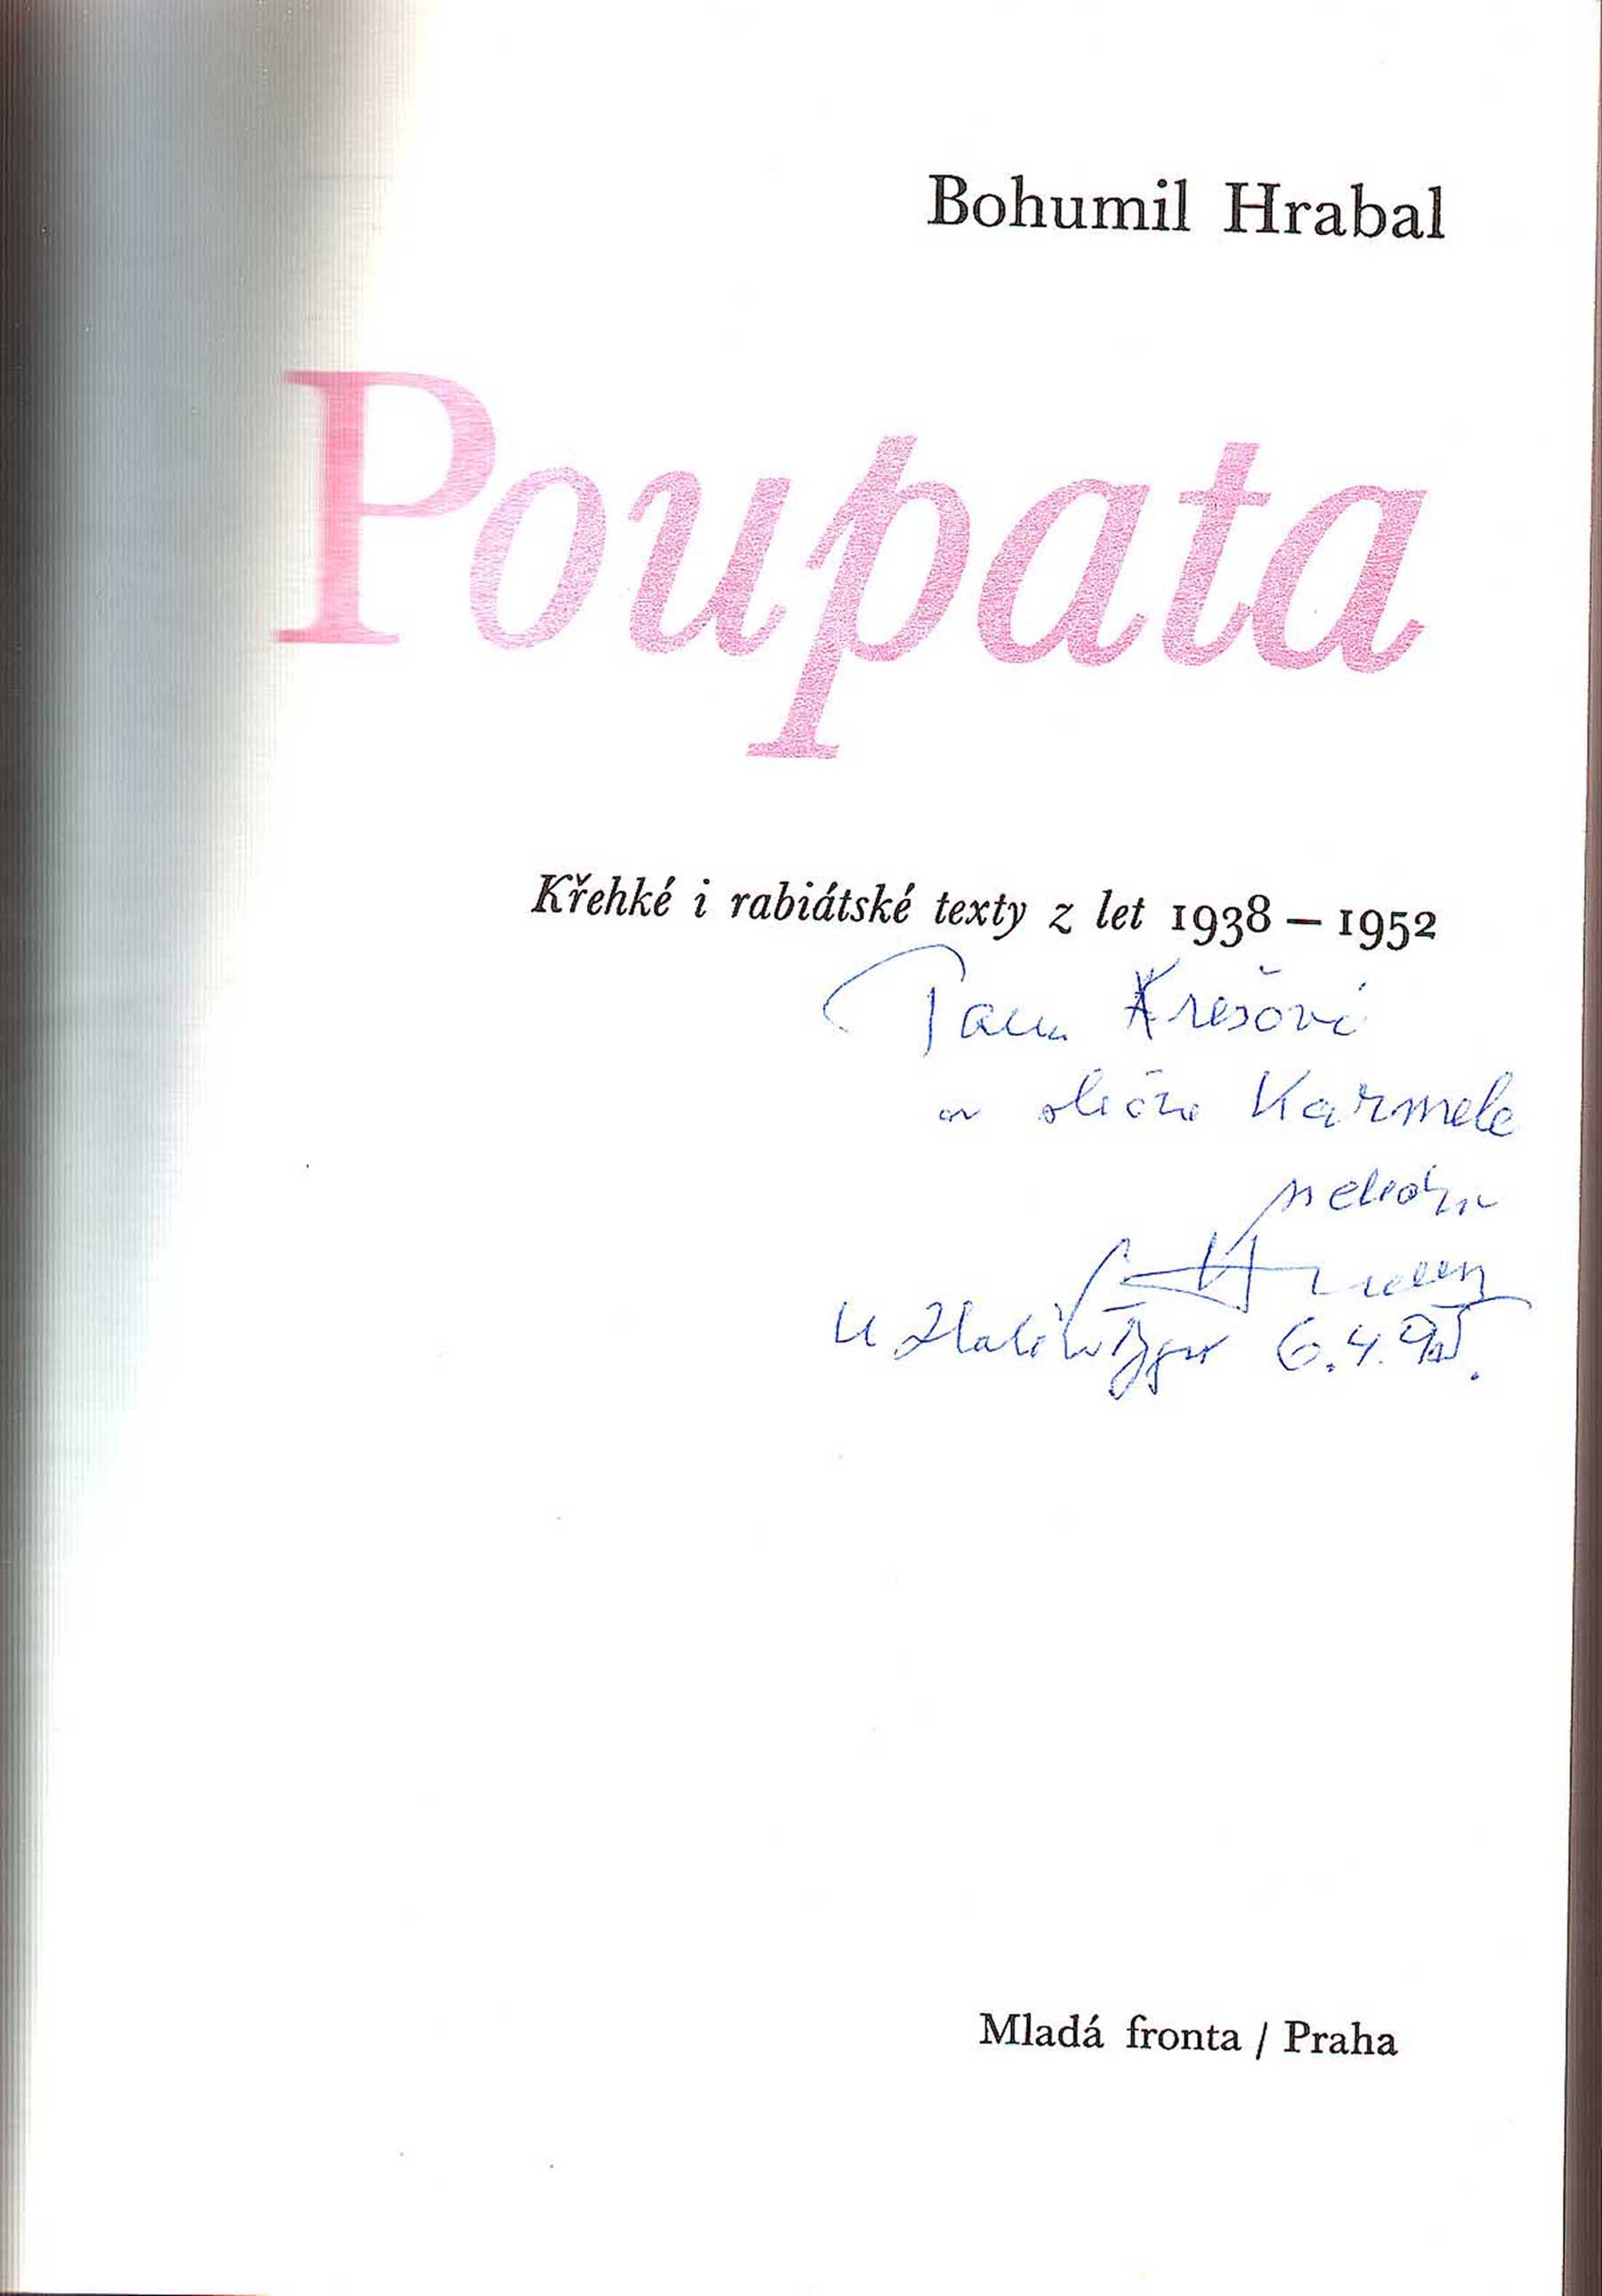 Bohumil Hrabal
Poupata
Křehké i rabiátské texty z let 1938 – 1952
Panu Krešovi
a slečně Karmele
U Zlatého Tygra 6.4.95.
Mladá fronta / Praha